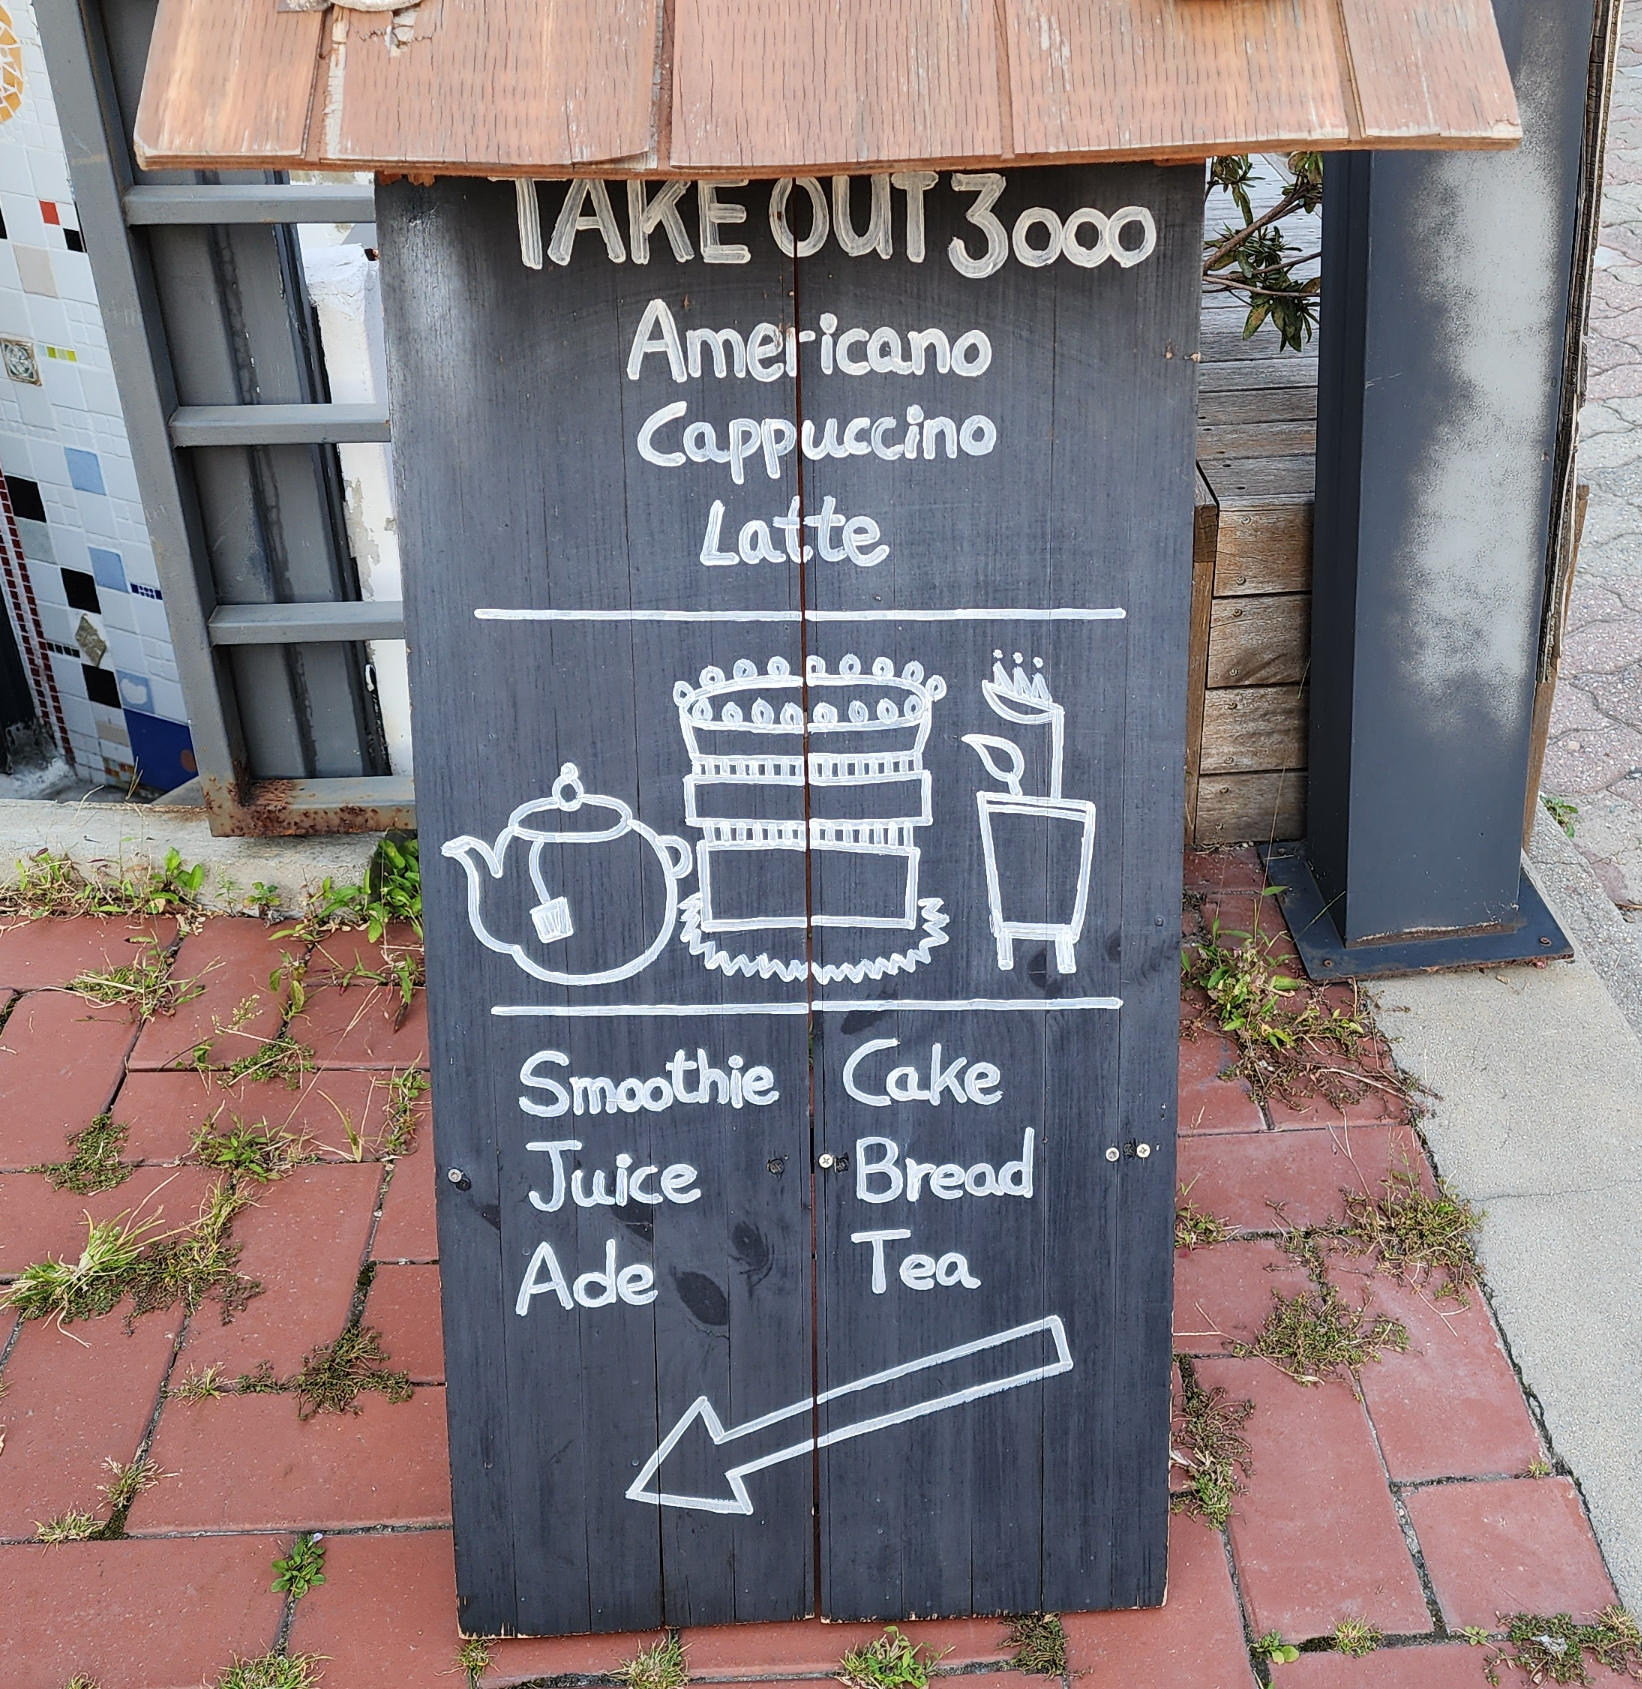 TAKE OUT 3000
Americano
Cappuccino
Latte
Smoothie
Juice
Ade
Cake
Bread
Tea